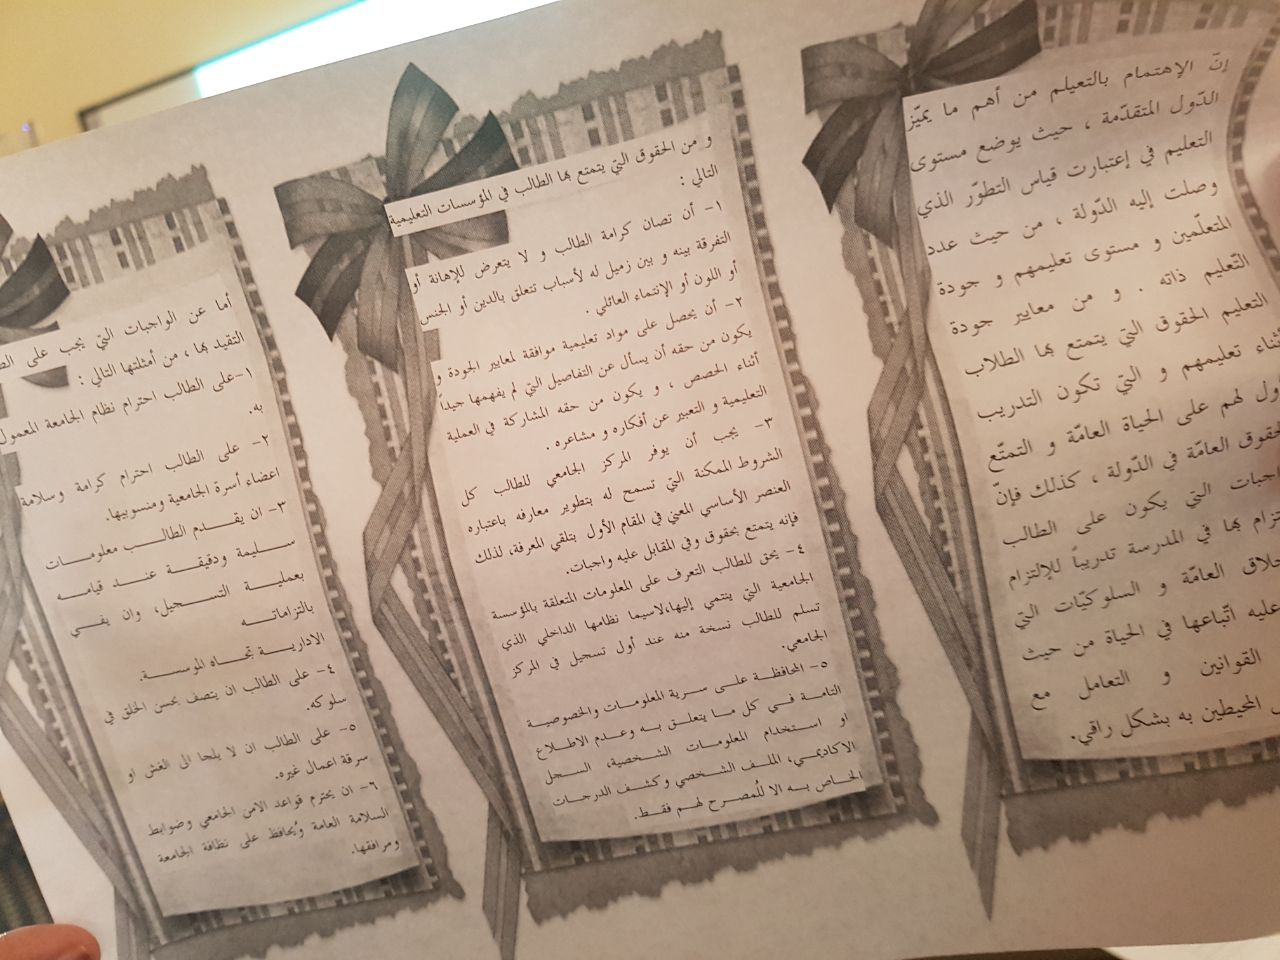 إنّ الإهتمام بالتعيلم من أهم ما يميّز
الدّول المتقدّمة ، حيث يوضع مستوى
التعليم في إعتبارت قياس التطوّر الذي
وصلت إليه الدّولة ، من حيث عدد
المتعلّمين و مستوى تعليمهم و جودة
التّعليم ذاته . و من معايير جودة
التعليم الحقوق التي يتمتع بها الطلاب
تعليمهم و التي تكون التدريب
لهم على الحياة العامّة و التمتّع
العامّة في الدّولة ، كذلك فإنّ
التي يكون على الطالب
بها في المدرسة تدريباً للإلتزام
العامّة و السلوكيّات التي
عليه اتّباعها في الحياة من حيث
القوانين و التعامل مع
المحيطين به بشكل راقي.
و من الحقوق التي يتمتع بها الطالب في المؤسسات التعليمية
التالي :
١- أن تصان كرامة الطالب و لا يتعرض للإهانة أو
التفرقة بينه و بين زميل له لأسباب تتعلق بالدين أو الجنس
أو اللون أو الإنتماء العائلي .
٢- أن يحصل على مواد تعليمية موافقة لمعايير الجودة و
يكون من حقه أن يسأل عن التفاصيل التي لم يفهمها جيداً
أثناء الحصص ، و يكون من حقه المشاركة في العملية
التعليمية و التعبير عن أفكاره و مشاعره .
٣- يجب أن يوفر المركز الجامعي للطالب كل
الشروط الممكنة التي تسمح له بتطوير معارفه باعتباره
العنصر الأساسي المعني في المقام الأول بتلقي المعرفة، لذلك
فإنه يتمتع بحقوق وفي المقابل عليه واجبات.
٤- يحق للطالب التعرف على المعلومات المتعلقة بالمؤسسة
الجامعية التي ينتمي إليها،لاسيما نظامها الداخلي الذي
تسلم للطالب نسخة منه عند أول تسجيل في المركز
الجامعي.
٥- المحافظة على سرية المعلومات والخصوصية
التامة في كل ما يتعلق به وعدم الاطلاع
او استخدام المعلومات الشخصية، السجل
الاكاديمي، الملف الشخصي وكشف الدرجات
الخاص به الا للُمصرح لهم فقط.
أما عن الواجبات التي يجب على
التقيد بها ، من أمثلتها التالي :
١-على الطالب احترام نظام الجامعة المعمول
به.
٢- على الطالب احترام كرامة وسلامة
اعضاء أسرة الجامعية ومنسوبيها.
٣- ان يقدم الطالب معلومات
سليمة ودقيقة عند قيامه
بعملية التسجيل، وان يفي
بالتزاماته
الادارية تجاه المؤسسة.
٤- على الطالب ان يتصف بحسن الخلق في
سلوكه.
٥- على الطالب ان لا يلجا الى الغش او
سرقة اعمال غيره.
٦- ان يحترم قواعد الامن الجامعي وضوابط
السلامة العامة وُيحافظ على نظافة الجامعة
ومرافقها.